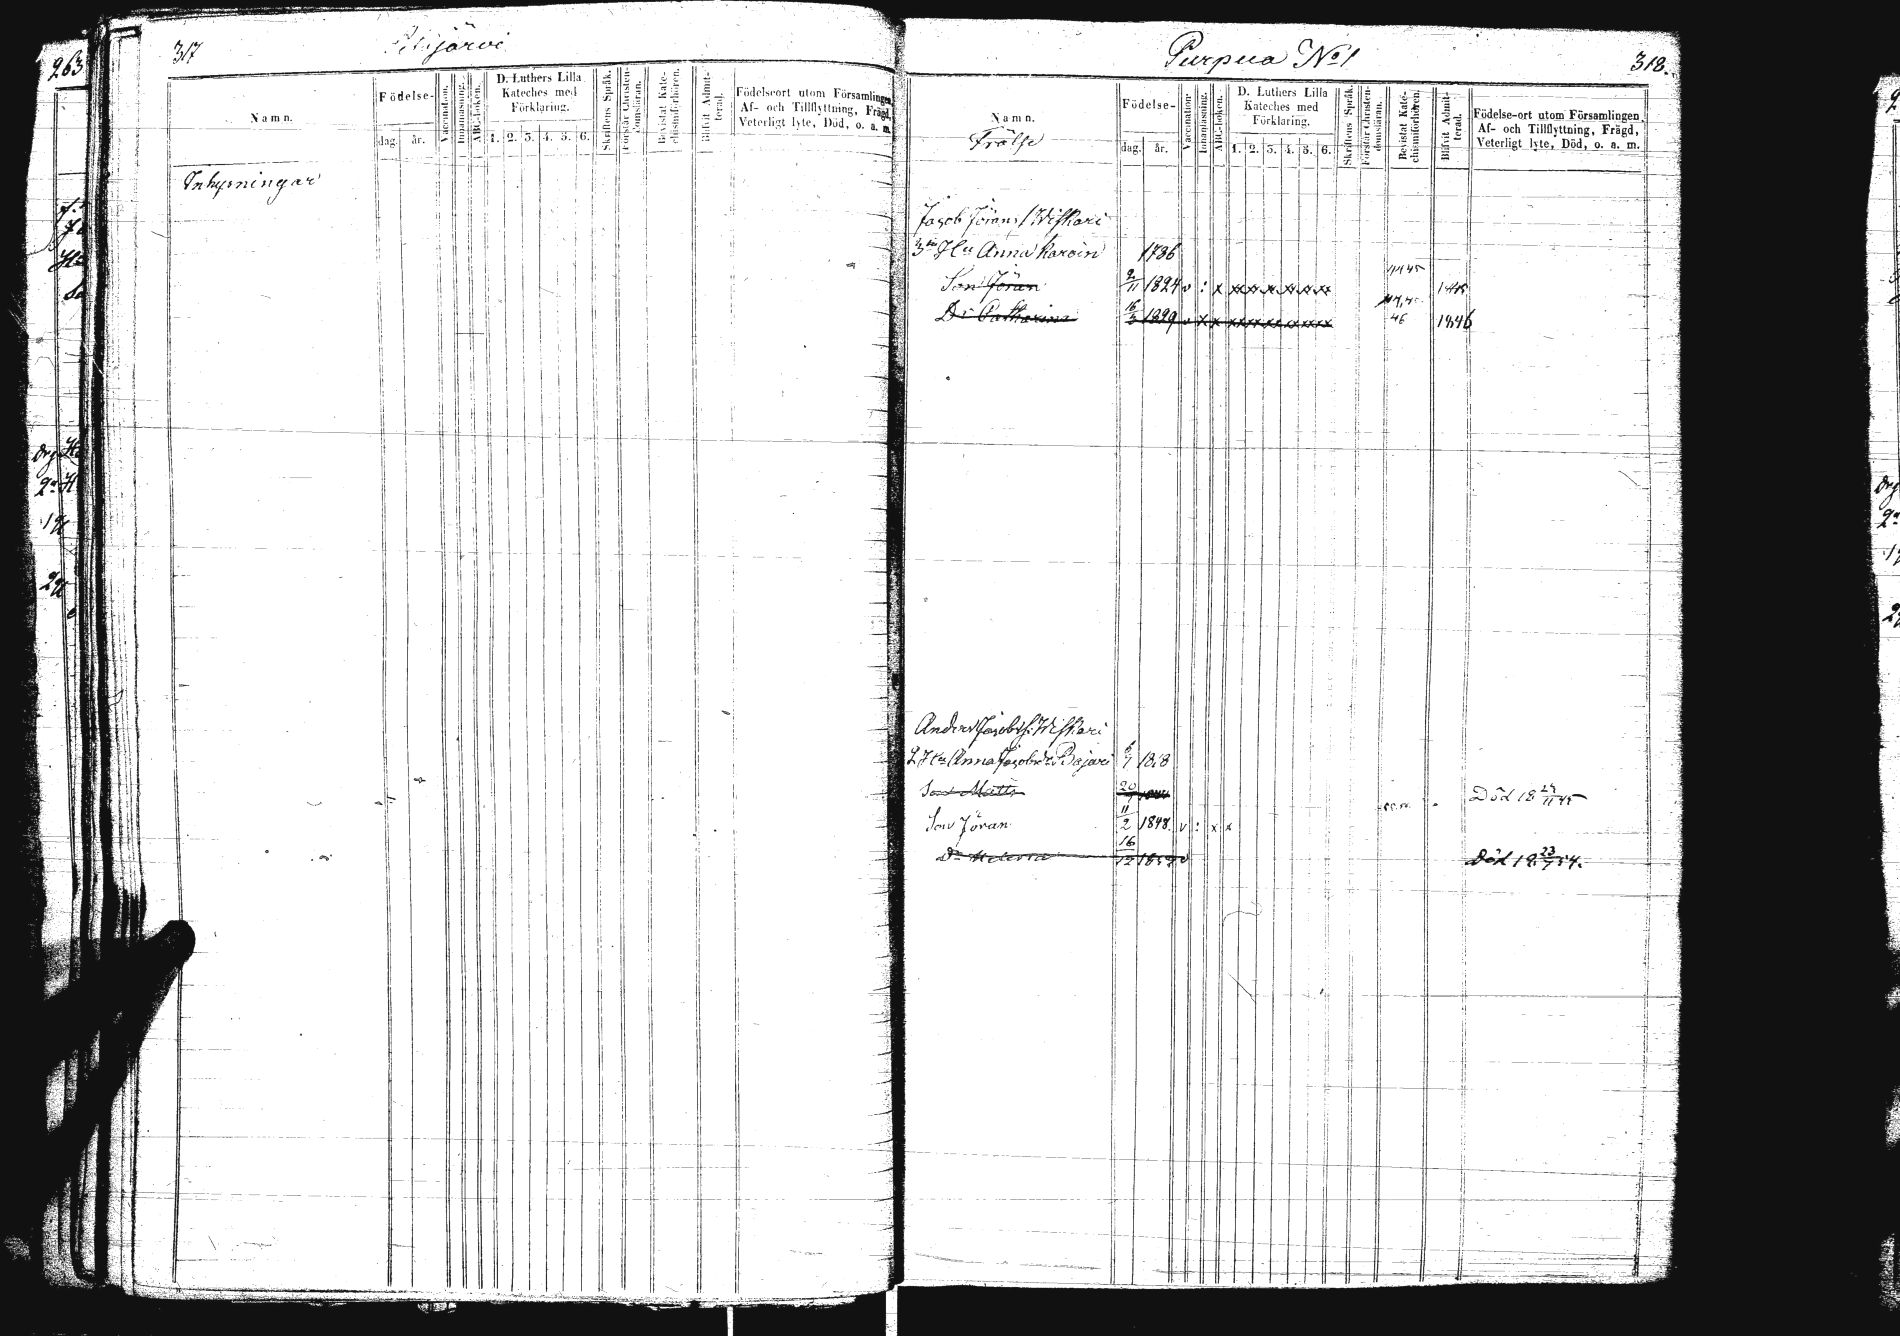 263
317
Namn.
Födelse-
dag.
år.
Vaccination.
Innanläsning.
ABC-boken.
D. Luthers Lilla
Kateches med
Förklaring.
1. 2. 3. 4. 5. 6.
Skriftens Språk.
Förstår Christen-
domsläran.
Bevistat Kate-
chismiförhören.
Blifvit Admit-
terad.
Födelse-ort utom Församlingen,
Af- och Tillflyttning, Frägd,
Veterligt lyte, Död, o. a. m.
Inhysningar
Purpua No 1
318.
Namn.
Frälse
Födelse-
dag.
år.
Vaccination.
Innanläsning.
ABC-boken.
D. Luthers Lilla
Kateches med
Förklaring.
1. 2. 3. 4. 5. 6.
Skriftens Språk.
Förstår Christen-
domsläran.
Bevistat Kate-
chismiförhören.
Blifvit Admit-
terad.
Födelse-ort utom Församlingen,
Af- och Tillflyttning, Frägd,
Veterligt lyte, Död, o. a. m.
Jacob Jörans. Wiskari
Hu Anna Karoin 1786
Son Jöran 2/11 1824 v : x
Dr Catharina 16/3 1829 v x x 46 1846
Anders Jacobs. Wiskari
2 Hu Anna Jacobsdr Bajari 1818
Son Matts 20 Död 18 24/11 45
Son Jöran 11/2 1848. v : x x
Dr Helena 16/12 v Död 18 23/7 54.